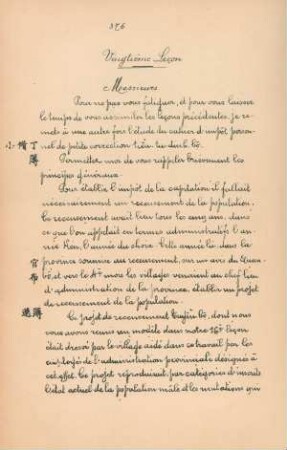 376
Vingtième Leçon
Messieurs
Pour ne pas vous fatiguer, et pour vous laisser
le temps de vous assimiler les leçons précédentes, je re-
mets à une autre fois l'étude du cahier d'impôt person-
小修丁簿
nel de petite correction tiểu tu đinh bộ.
Permettez moi de vous rappeler brièvement les
principes généraux.
Pour établir l'impôt de la capitation il fallait
nécessairement un recensement de la population.
Le recensement avait lieu tous les cinq ans, dans
ce que l'on appelait en termes administratifs l'an-
née tuyển, l'année du choix. Cette année là dans la
province soumise au recensement, sur un avis du Quan
官布
bố, et vers le 4e mois les villages venaient au chef lieu
d'administration de la province, établir un projet
de recensement de la population.
選簿
Ce projet de recensement tuyển bộ, dont nous
vous avons remis un modèle dans notre 16e leçon
était dressé par le village aidé dans ce travail par les
employés de l'administration provinciale désignés à
cet effet. Ce projet reproduisait par catégories d'inscrits
l'état actuel de la population mâle et les mutations qui